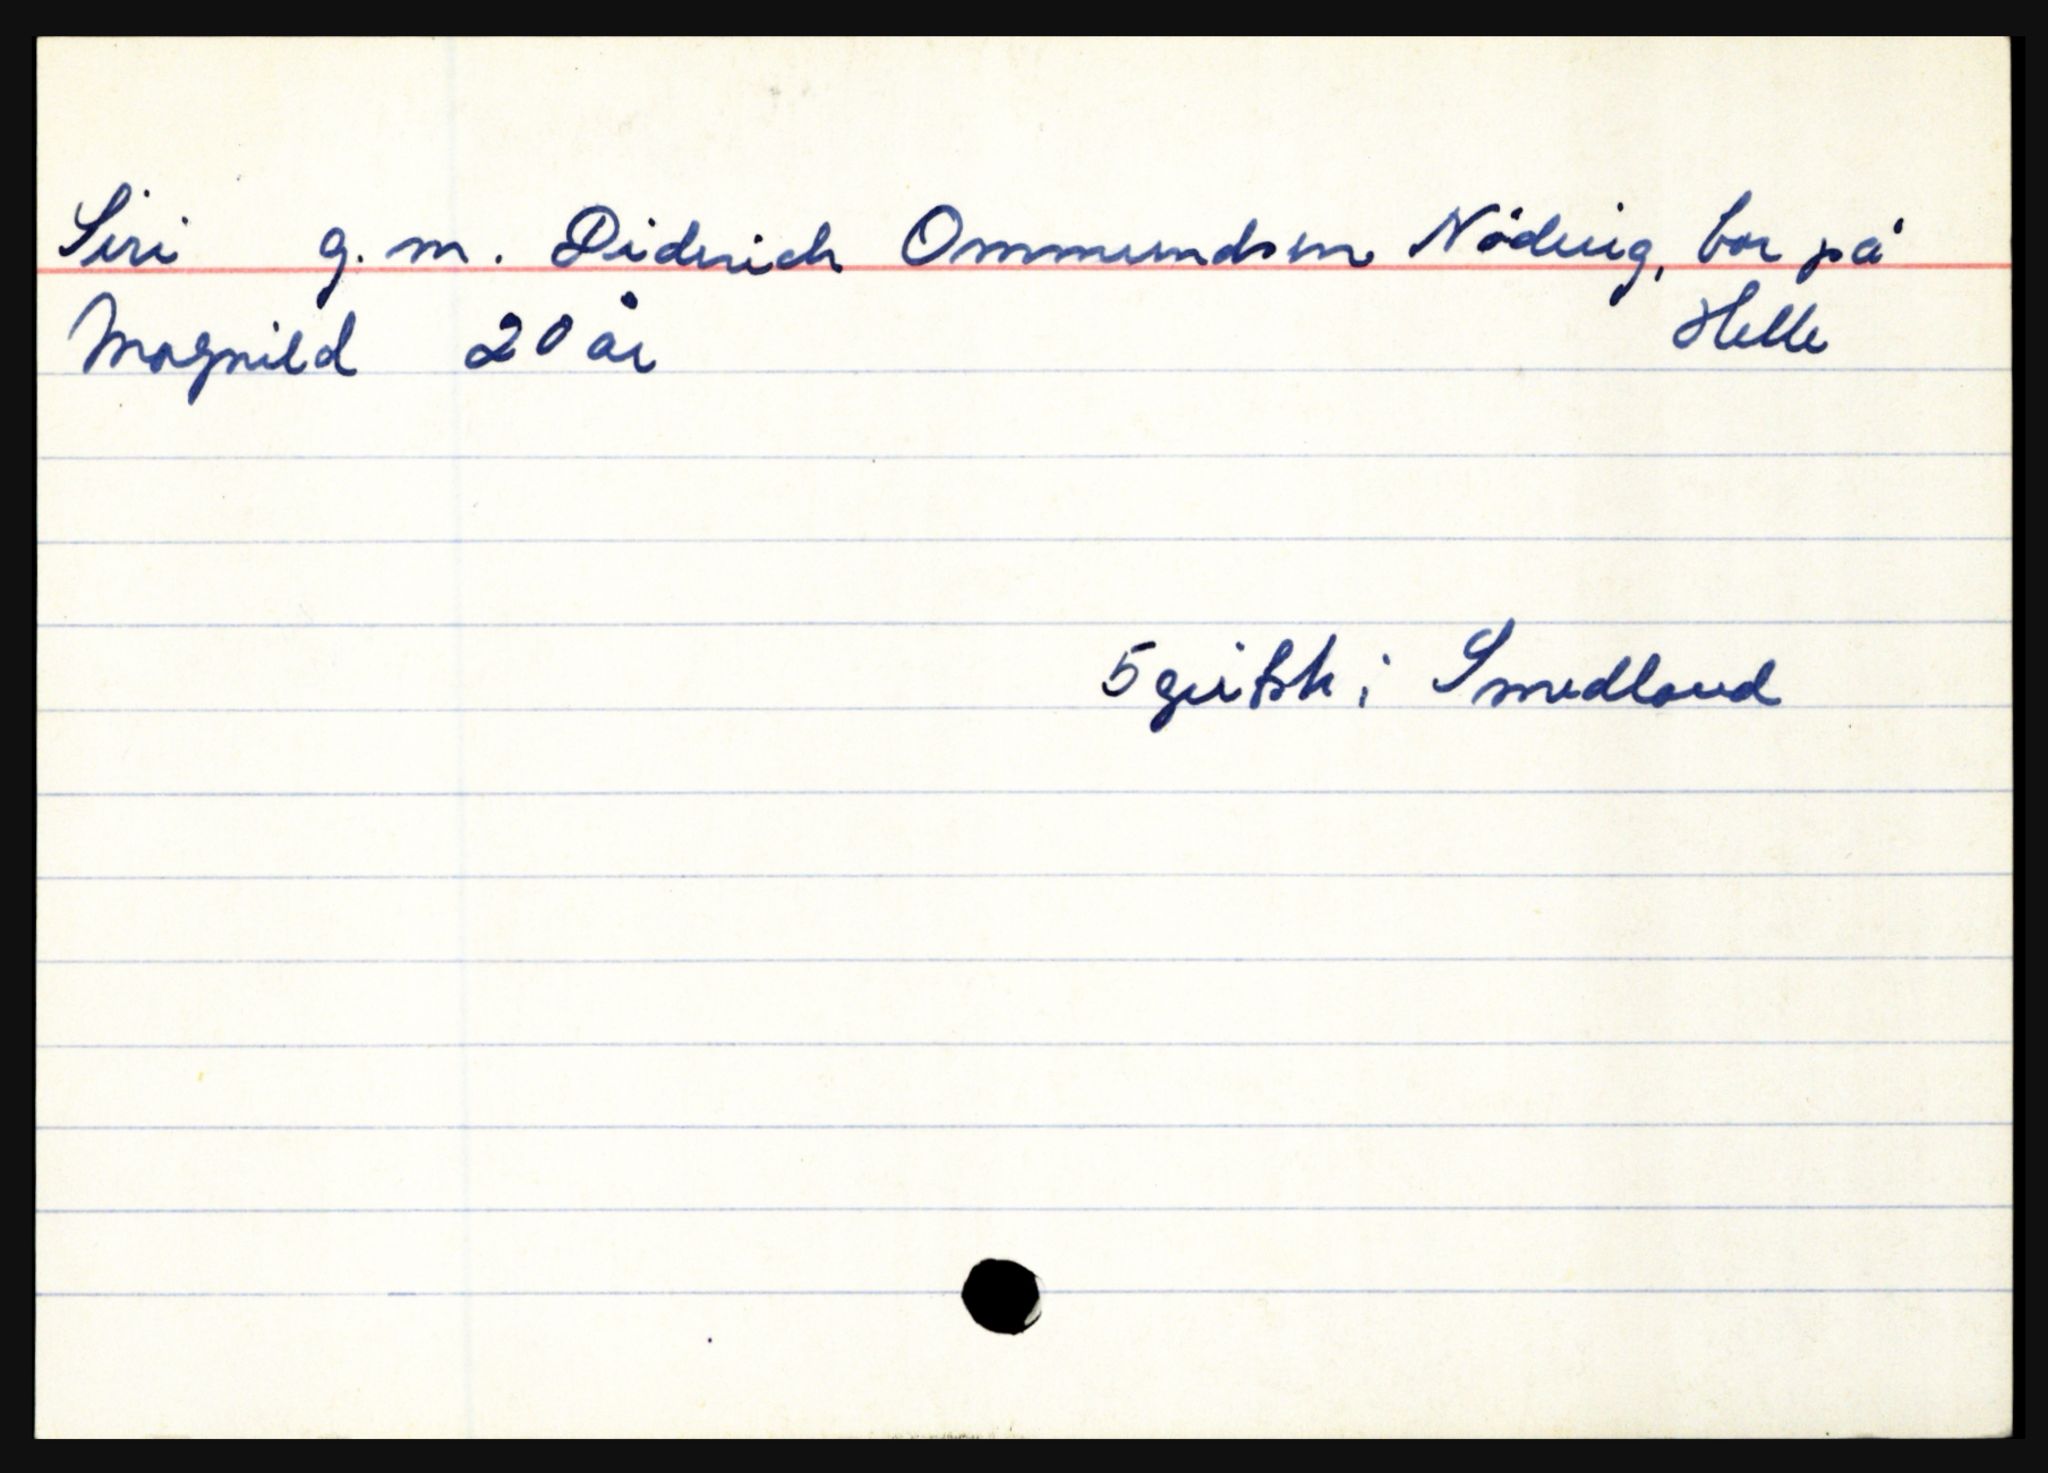 Siri g. m. Didrich Ommundsen Nöding, bor på
Helle
Magnild 20 år
5 geitsk i Smedland